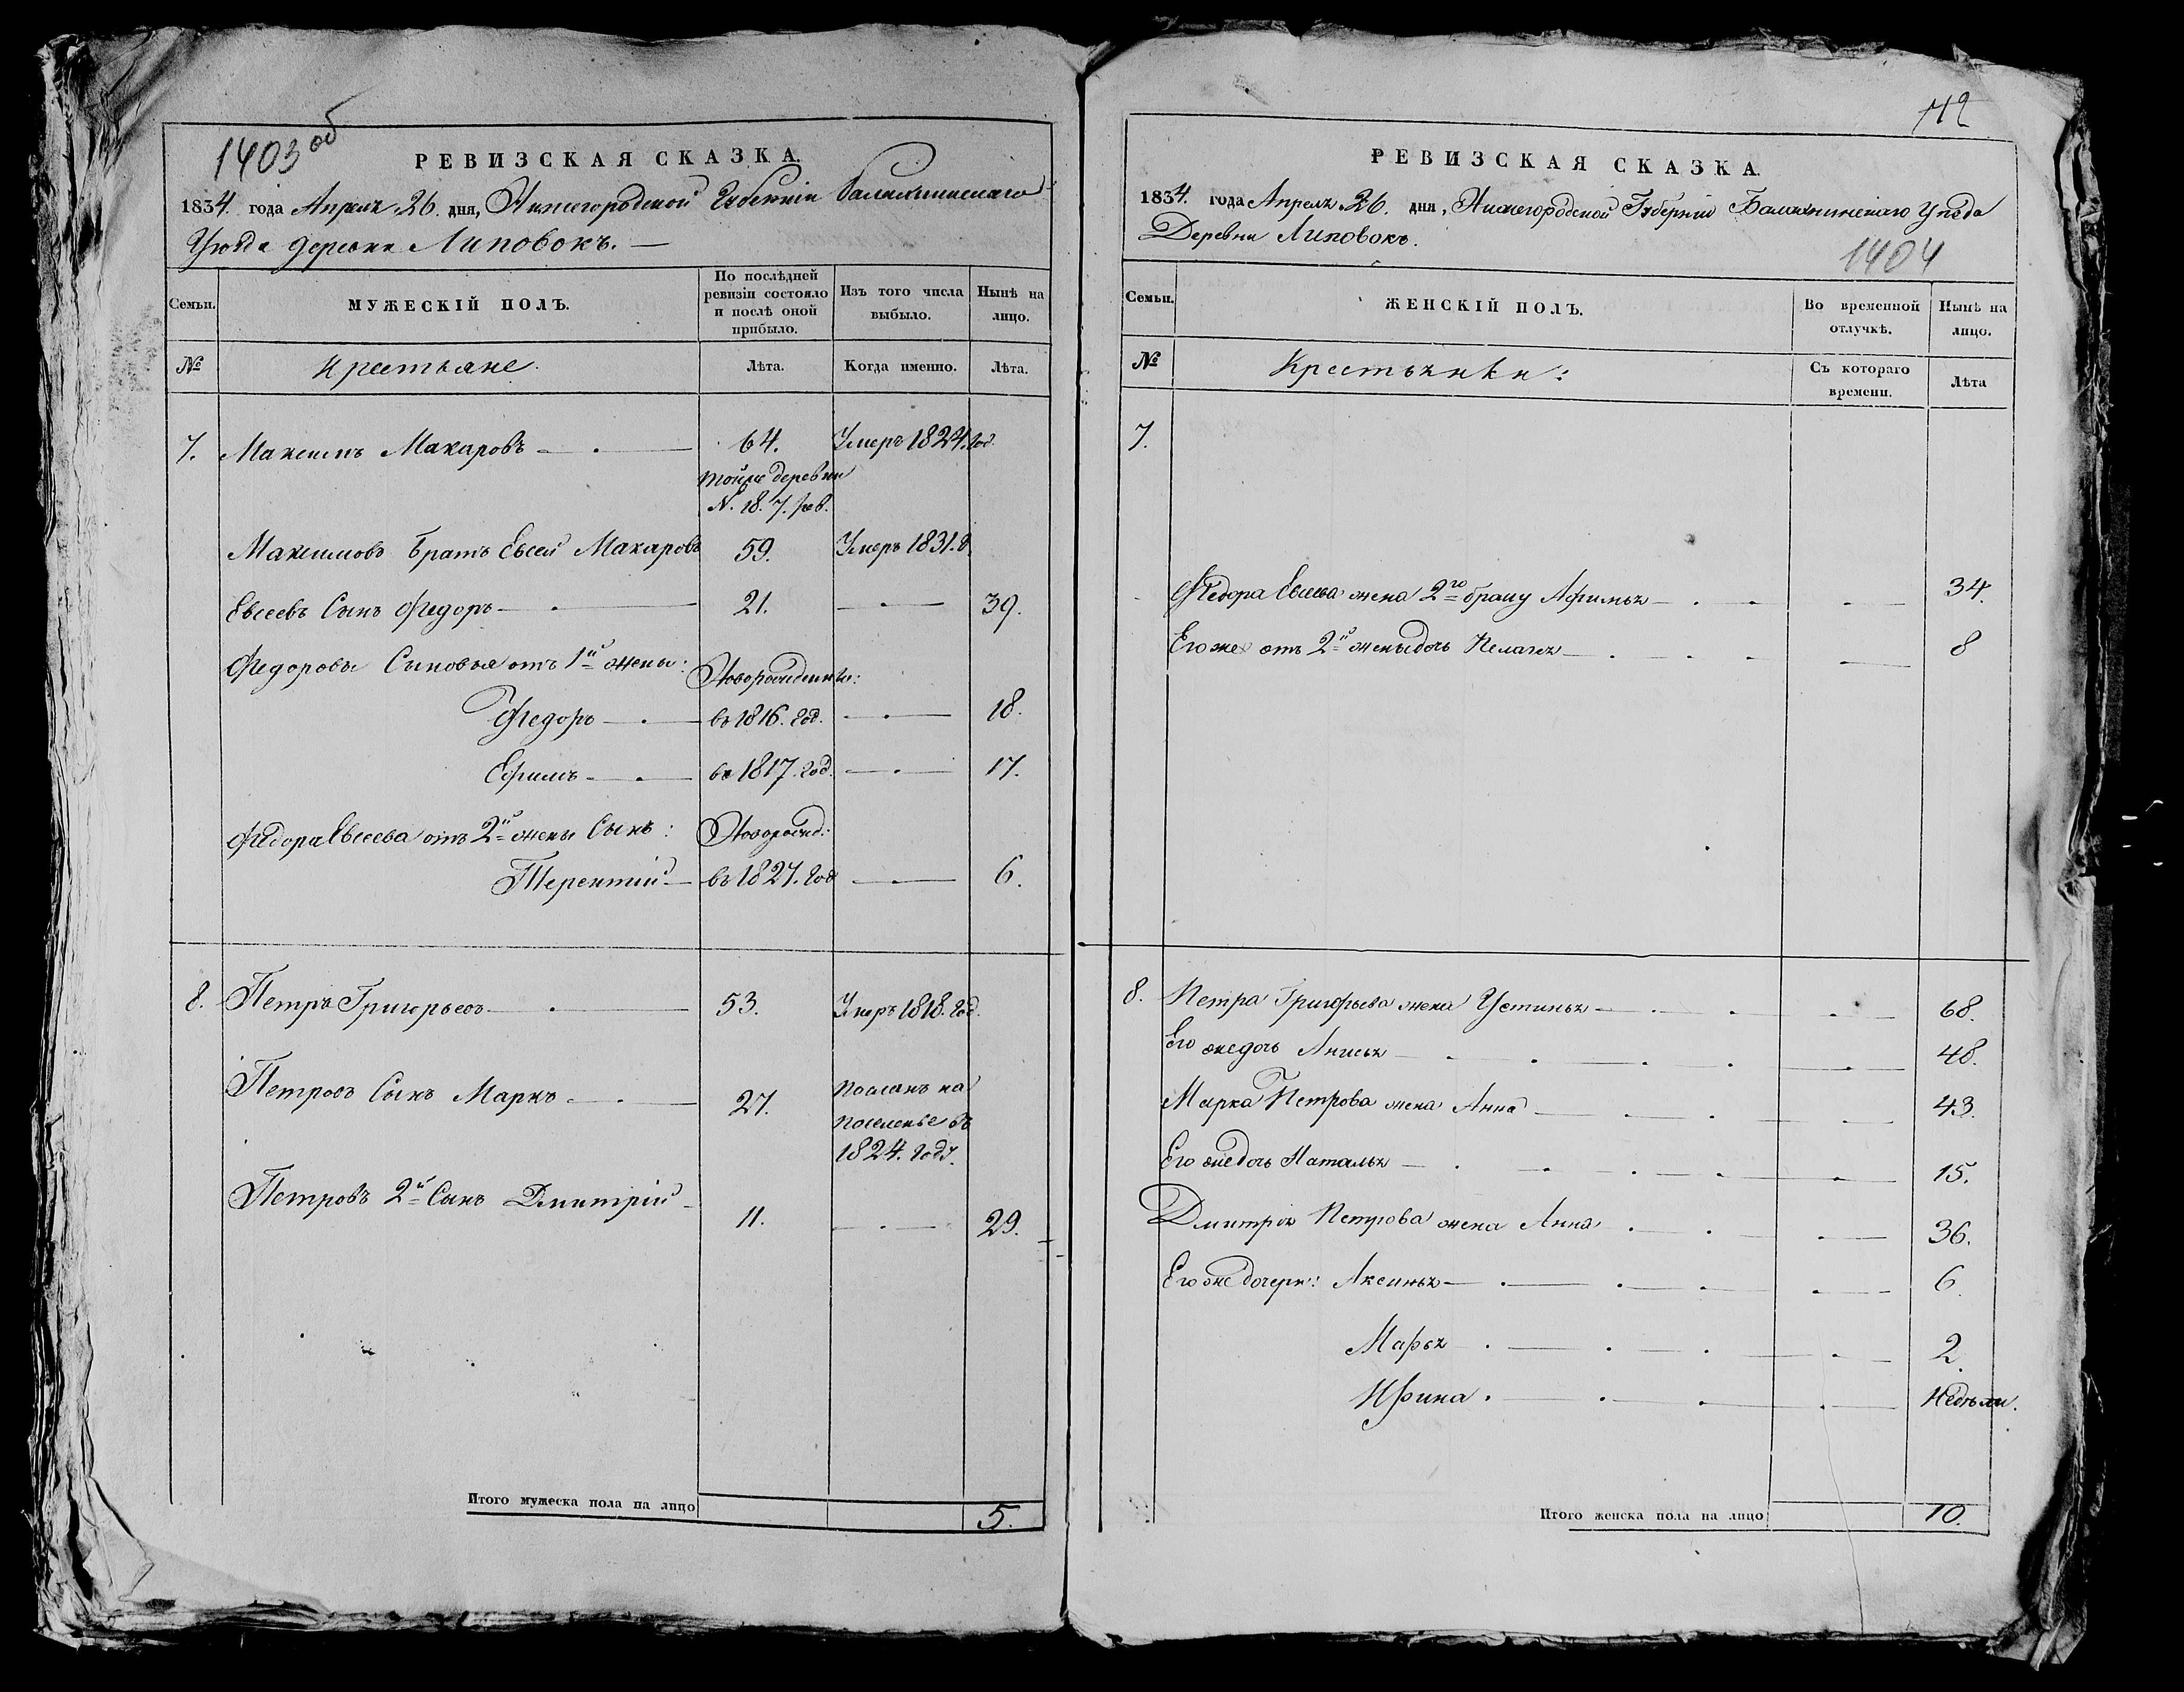 1403 об
РЕВИЗСКАЯ СКАЗКА.
1834. года Апреля 26. дня, Нижегородской Губернiи Балахнинскаго
Уезда деревни Липовокъ.
Семьи.
МУЖЕСКIЙ ПОЛЪ.
По послѣдней ревизiи состояло и послѣ оной прибыло.
Изъ того числа выбыло.
Нынѣ на лицо.
№
Крестьяне.
Лѣта.
Когда именно.
Лѣта.
7. Максимъ Макаровъ 64. Умеръ 1824. год.
тойже деревни
N. 18. 7. рев.
Максимовъ братъ Евсей Макаровъ 59. Умеръ 1831. г.
Евсеевъ Сынъ Федоръ 21. 39.
Федоровы Сыновья отъ 1й жены: Новорожденные:
Федоръ въ 1816. год. 18.
Ефимъ въ 1817. год. 17.
Федора Евсеева отъ 2й жены Сынъ: Новорожд:
Терентiй въ 1827. год 6.
8. Петръ Григорьевъ 53. Умеръ 1818. год.
Петровъ Сынъ Маркъ 27. Посланъ на
поселенье въ
1824. году.
Петровъ 2й Сынъ Дмитрiй 11. 29.
Итого мужеска пола на лицо 5.
712
РЕВИЗСКАЯ СКАЗКА.
1834. года Апреля 26. дня, Нижегородской Губернiи Балахнинскаго Уѣзда
Деревни Липовокъ.
1404
Семьи.
ЖЕНСКIЙ ПОЛЪ.
Во временной отлучкѣ.
Нынѣ на лицо.
№
Крестьянки:
Съ котораго времени.
Лѣта
7.
Федора Евсеева жена 2го браку Афимья 34.
Его же отъ 2й жены дочь Пелагея 8
8. Петра Григорьева жена Устинья 68.
Его же дочь Анисья 48.
Марка Петрова жена Анна 43.
Его же дочь Наталья 15.
Дмитрiя Петрова жена Анна 36.
Его же дочери: Аксинья 6.
Марья 2.
Ирина Недѣли.
Итого женска пола на лицо 10.